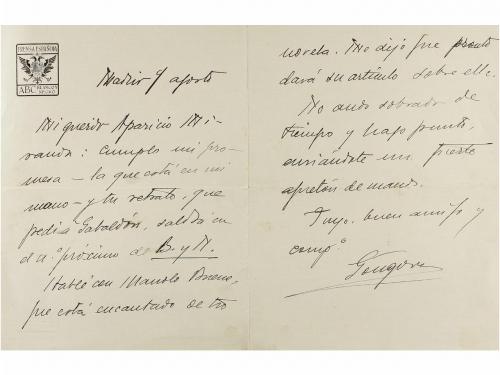 PRENSA ESPAÑOLA
ABC BLANCO Y NEGRO
Madrid 9 agosto
Mi querido Aparicio Mi-
randa: cumplo mi pro-
mesa – la que está en mi
mano – y tu retrato, que
pedia Gabaldón, saldrá en
el nº próximo de B. y N.
Hablé con Manolo Bueno,
que está encantado de tu
novela. Me dijo que pronto
dará su artículo sobre ella.
No ando sobrado de
tiempo y hago punto,
enviándote un fuerte
apretón de manos.
Tuyo buen amigo y
compº
Gongora